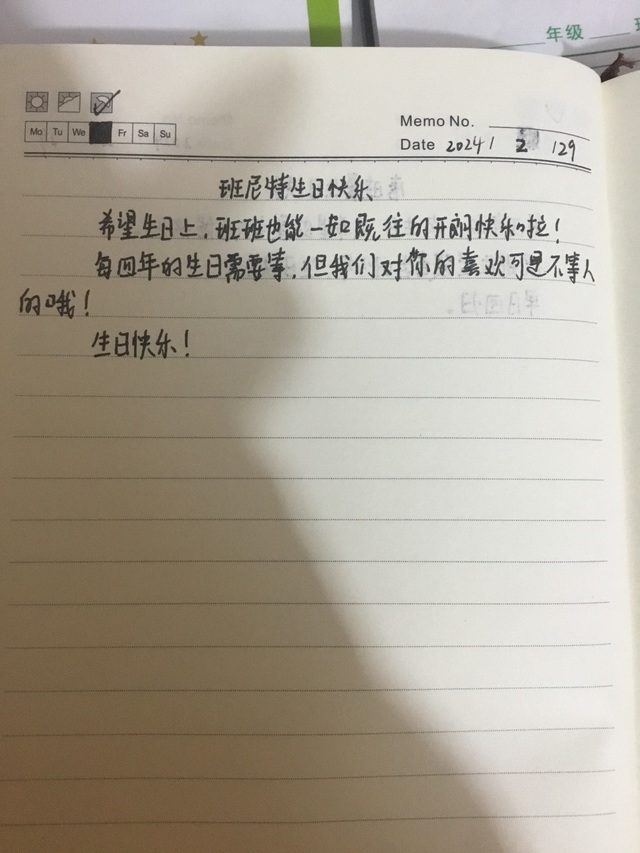 年级
Mo Tu We Fr Sa Su
Memo No.
Date 2024/ 2 /29
班尼特生日快乐
希望生日上,班班也能一如既往的开朗快乐啦!
每四年的生日需要等,但我们对你的喜欢可是不等人
的哦!
生日快乐!